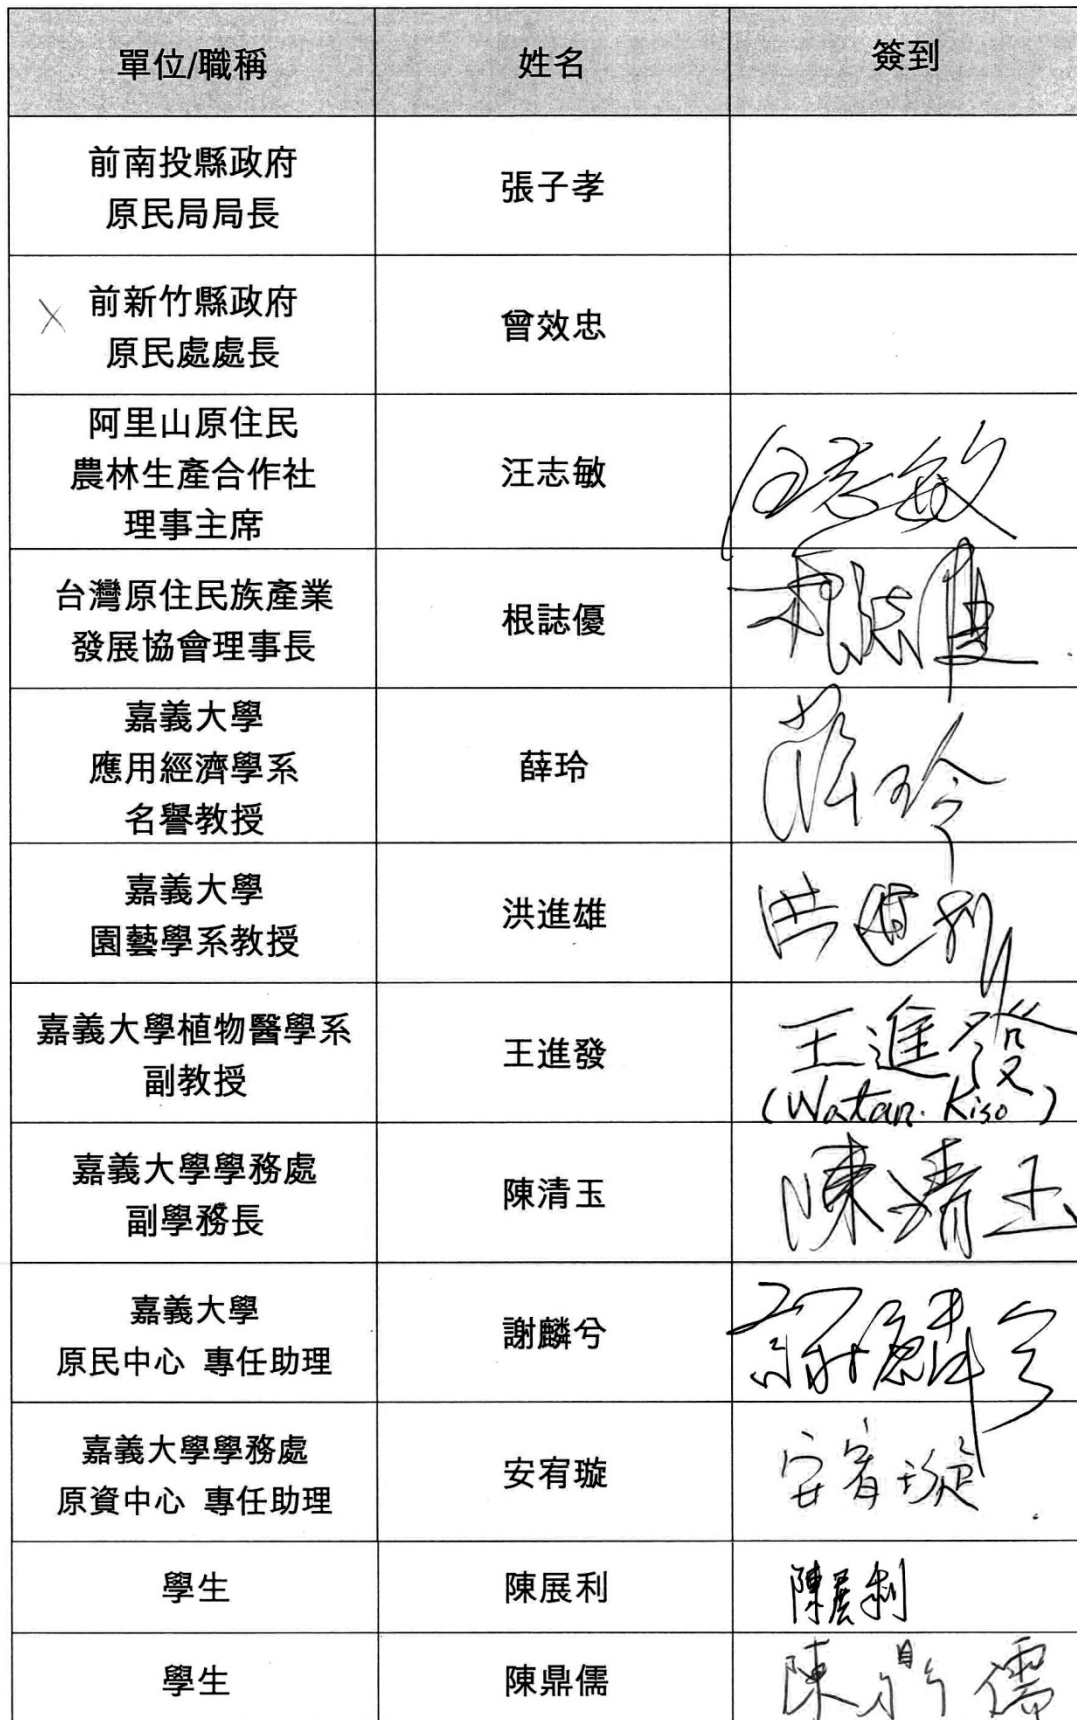 單位/職稱 姓名 簽到
前南投縣政府
原民局局長
張子孝
X 前新竹縣政府
原民處處長
曾效忠
阿里山原住民
農林生產合作社
理事主席
汪志敏
汪志敏
台灣原住民族產業
發展協會理事長
根誌優
根誌優
嘉義大學
應用經濟學系
名譽教授
薛玲
薛玲
嘉義大學
園藝學系教授
洪進雄
洪進雄
嘉義大學植物醫學系
副教授
王進發
王進發
(Watan. Kiso)
嘉義大學學務處
副學務長
陳清玉
陳清玉
嘉義大學
原民中心 專任助理
謝麟兮
謝麟兮
嘉義大學學務處
原資中心 專任助理
安宥璇
安宥璇
學生 陳展利 陳展利
學生 陳鼎儒 陳鼎儒